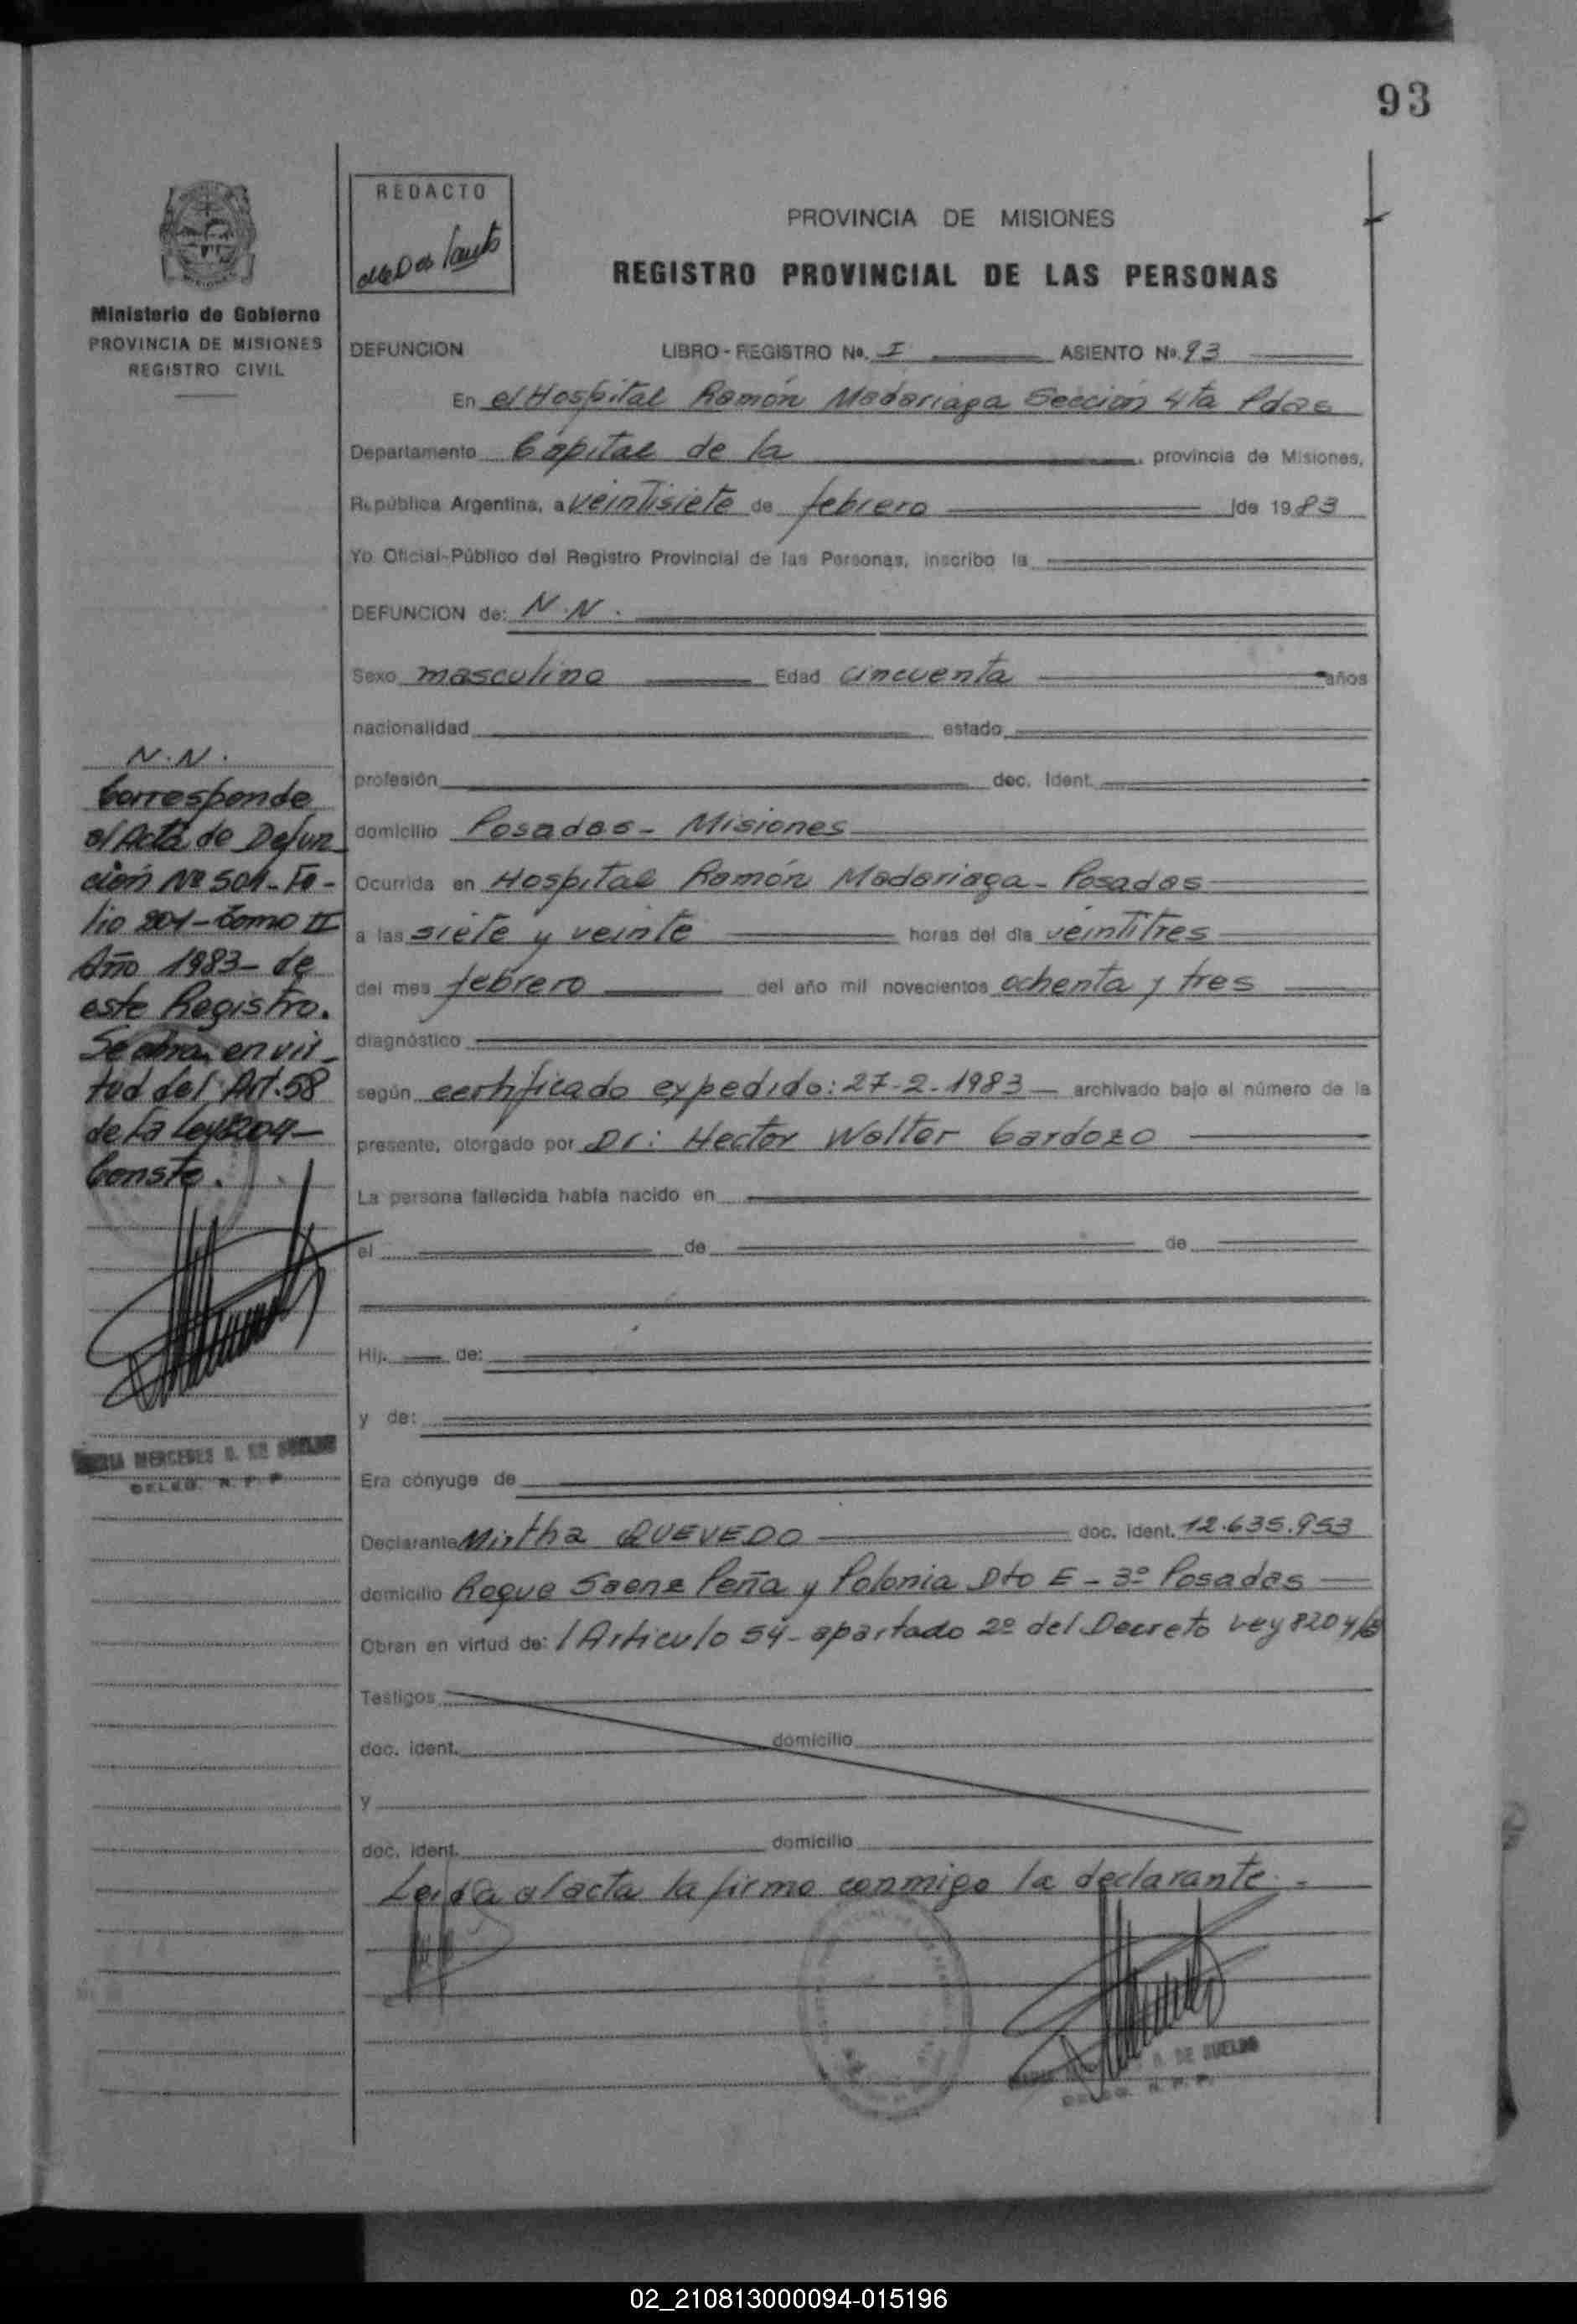 93
REDACTO
PROVINCIA DE MISIONES
REGISTRO PROVINCIAL DE LAS PERSONAS
Ministerio de Gobierno
PROVINCIA DE MISIONES
REGISTRO CIVIL
DEFUNCION LIBRO - REGISTRO Nº. I ASIENTO Nº. 93
En el Hospital Ramón Madariaga Sección 4ta Pdas
Departamento Capital de la provincia de Misiones,
República Argentina, a veintisiete de febrero de 1983
Yo Oficial-Público del Registro Provincial de las Personas, inscribo la
DEFUNCION de: N.N.
Sexo masculino Edad cincuenta años
nacionalidad estado
profesión doc. Ident.
domicilio Posadas - Misiones
Ocurrida en Hospital Ramón Madariaga - Posadas
a las siete y veinte horas del día veintitres
del mes febrero del año mil novecientos ochenta y tres
diagnóstico
según certificado expedido: 27-2-1983 archivado bajo el número de la
presente, otorgado por Dr: Hector Walter Cardozo
La persona fallecida había nacido en
el de de
Hij. de:
y de:
Era cónyuge de
Declarante Mirtha QUEVEDO doc. ident. 12.635.953
domicilio Roque Saenz Peña y Polonia Dto E - 3º Posadas
Obran en virtud de: l Articulo 54 - apartado 2º del Decreto Ley 8204/
Testigos
doc. ident. domicilio
y
doc. ident. domicilio
Leida el acta la firma conmigo la declarante. -
N.N.
Corresponde
al Acta de Defun
ción Nº 501 - Fo -
lio 201 - Tomo II
Año 1983 - de
este Registro.
en vir -
tud del Art. 58
de la Ley 8204 -
Conste.
MERCEDES
DELEG. R. P. P.
DE
R. P. P.
02_210813000094-015196